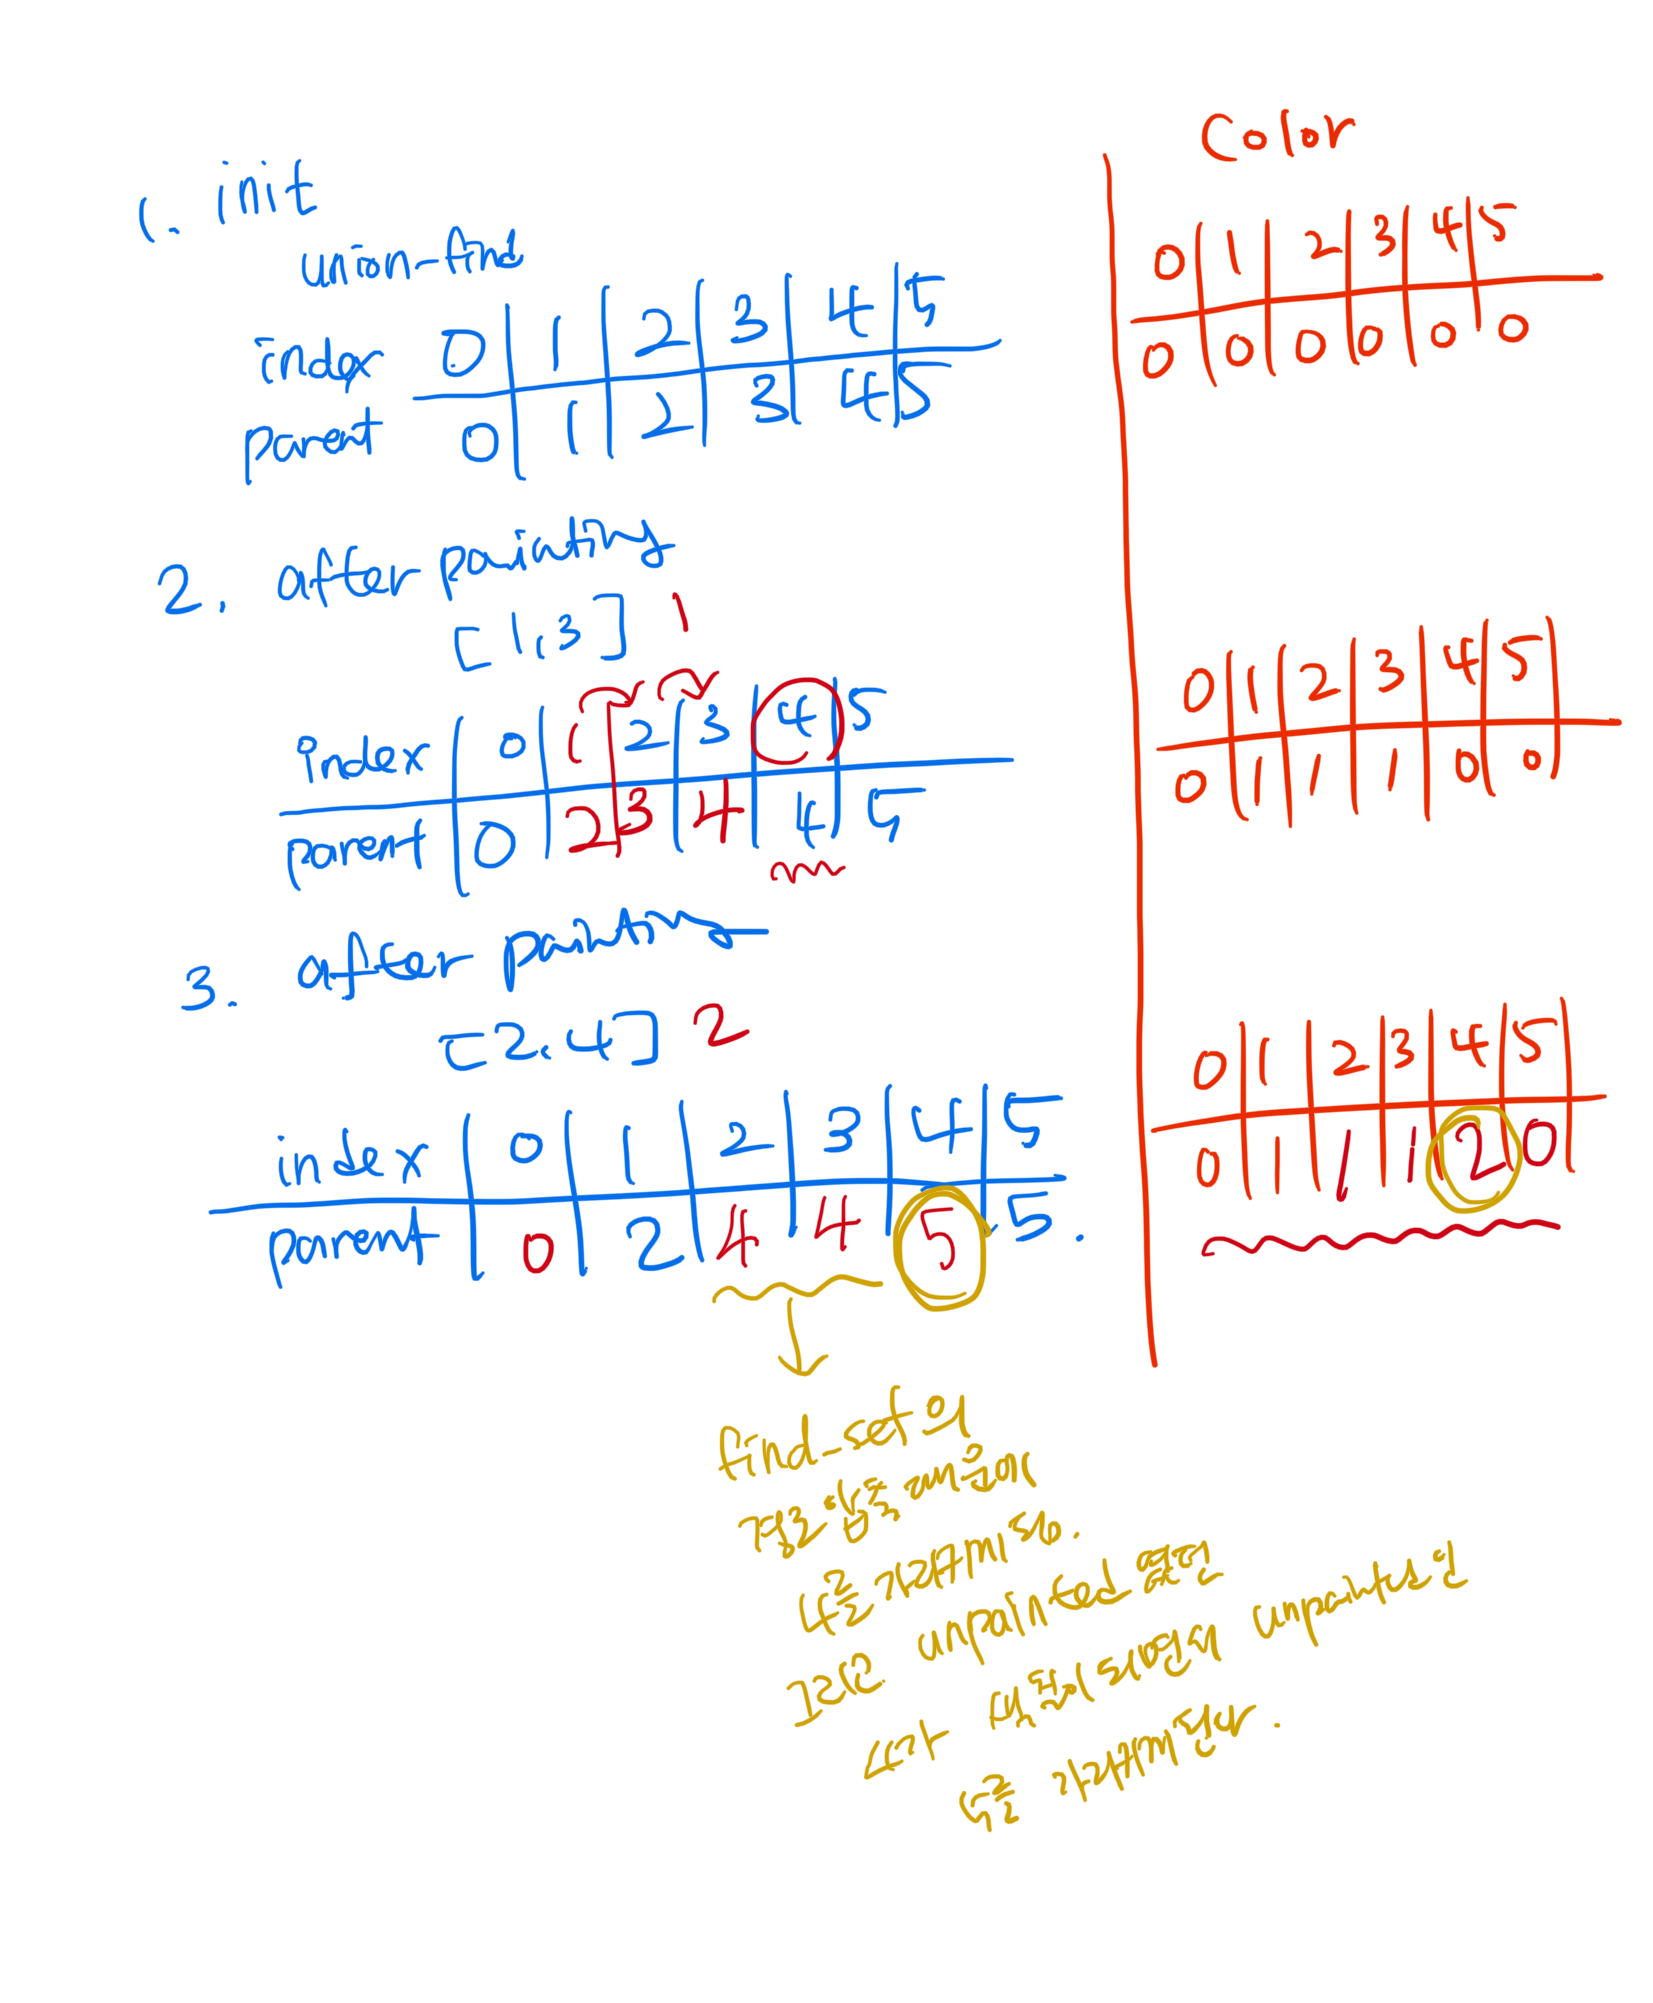 1. init
union-find
index 0 1 2 3 4 5
paret 0 1 2 3 4 5
2. after painting
[1,3] 1
index 0 1 2 3 4 5
parent 0 2 3 4 4 5
3. after painting
[2,4] 2
index 0 1 2 3 4 5
parent 0 2 4 4 5 5.
find_set의
경로 압축 때문에
4를 가리키게 됨.
그리고 unpainted
unpainted 인
5를 가리키게 된다.
Color
0 1 2 3 4 5
0 0 0 0 0 0
0 1 2 3 4 5
0 1 1 1 0 0
0 1 2 3 4 5
0 1 1 1 2 0